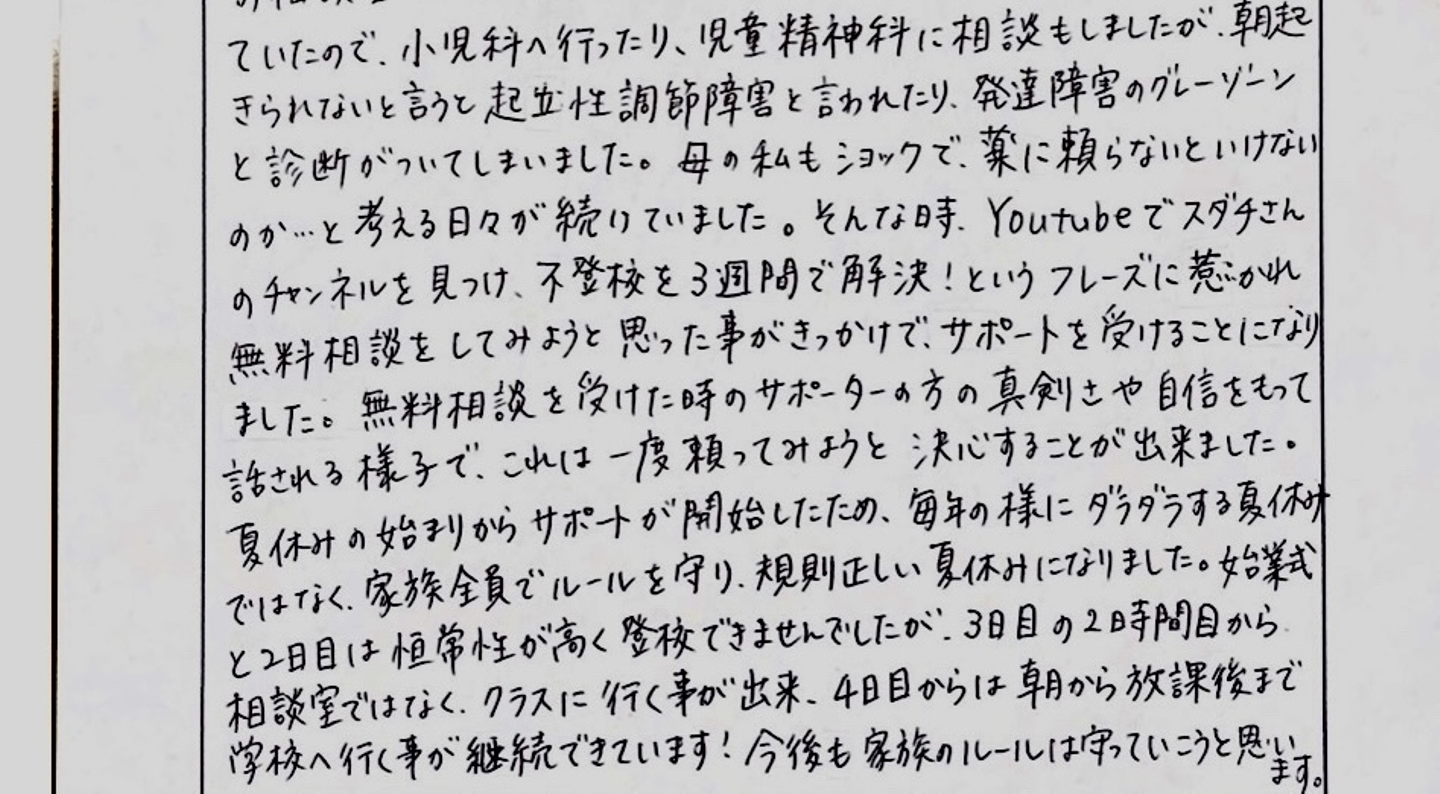 ていたので、小児科へ行ったり、児童精神科に相談もしましたが、朝起
きられないと言うと起立性調節障害と言われたり、発達障害のグレーゾーン
と診断がついてしまいました。母の私もショックで、薬に頼らないといけない
のか…と考える日々が続けていました。そんな時、Youtubeでスダチさん
のチャンネルを見つけ、不登校を3週間で解決!というフレーズに惹かれ
無料相談をしてみようと思った事がきっかけで、サポートを受けることになり
ました。無料相談を受けた時のサポーターの方の真剣さや自信をもって
話される様子で、これは一度頼ってみようと決心することが出来ました。
夏休みの始まりからサポートが開始したため、毎年の様にダラダラする夏休み
ではなく、家族全員でルールを守り、規則正しい夏休みになりました。始業式
と2日目は恒常性が高く登校できませんでしたが、3日目の2時間目から
相談室ではなく、クラスに行く事が出来、4日目からは朝から放課後まで
学校へ行く事が継続できています!今後も家族のルールは守っていこうと思い
ます。